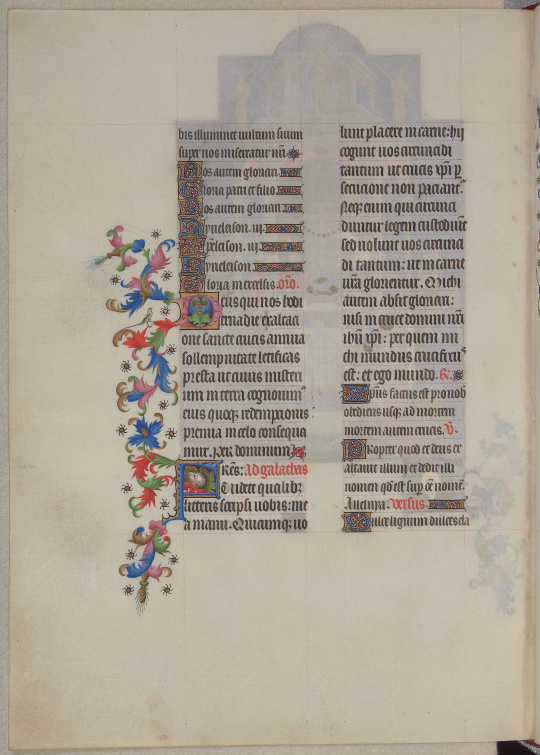 bis illuminet vultum suum
super nos misereatur nr̄i
Nos autem gloriari
Gloria patri et filio
Nos autem gloriari
Kyrieleison. iij
Xp̄eleison. iij
Kyrieleison
Gloria in excelsis. or̄o.
Deus qui nos hodi
erna die exaltaci
one sancte crucis annua
sollempnitate letificas
presta ut cuius misteri
um in terra cognouim᷒
eius quoq; redempcionis
premia in celo consequa
mur. per dominum
Fr̄es: Ad galathas
Uidete qualib᷒
litteris scripsi uobis: me
a manu. Quicumq; uo
lunt placere in carne: hij
cogunt uos circumcidi
tantum ut crucis xp̄i p
secucione non paciant᷒.
Neq; enim qui circumci
duntur legem custodiūt
sed uolunt uos circumci
di tantum: ut in carne
ura glorientur. Michi
autem absit gloriari:
nisi in cruce domini nr̄i
ihū xp̄i: per quem mi
chi mundus crucifixus
est: et ego mundo. R.
Xp̄us factus est pro nob᷒
obediens usq; ad mortem
mortem autem crucis. V.
Propter quod et deus ex
altauit illum et dedit illi
nomen qd̄ est sup om̄e nomē.
Alleluya. Versus.
Dulce lignum dulces cla